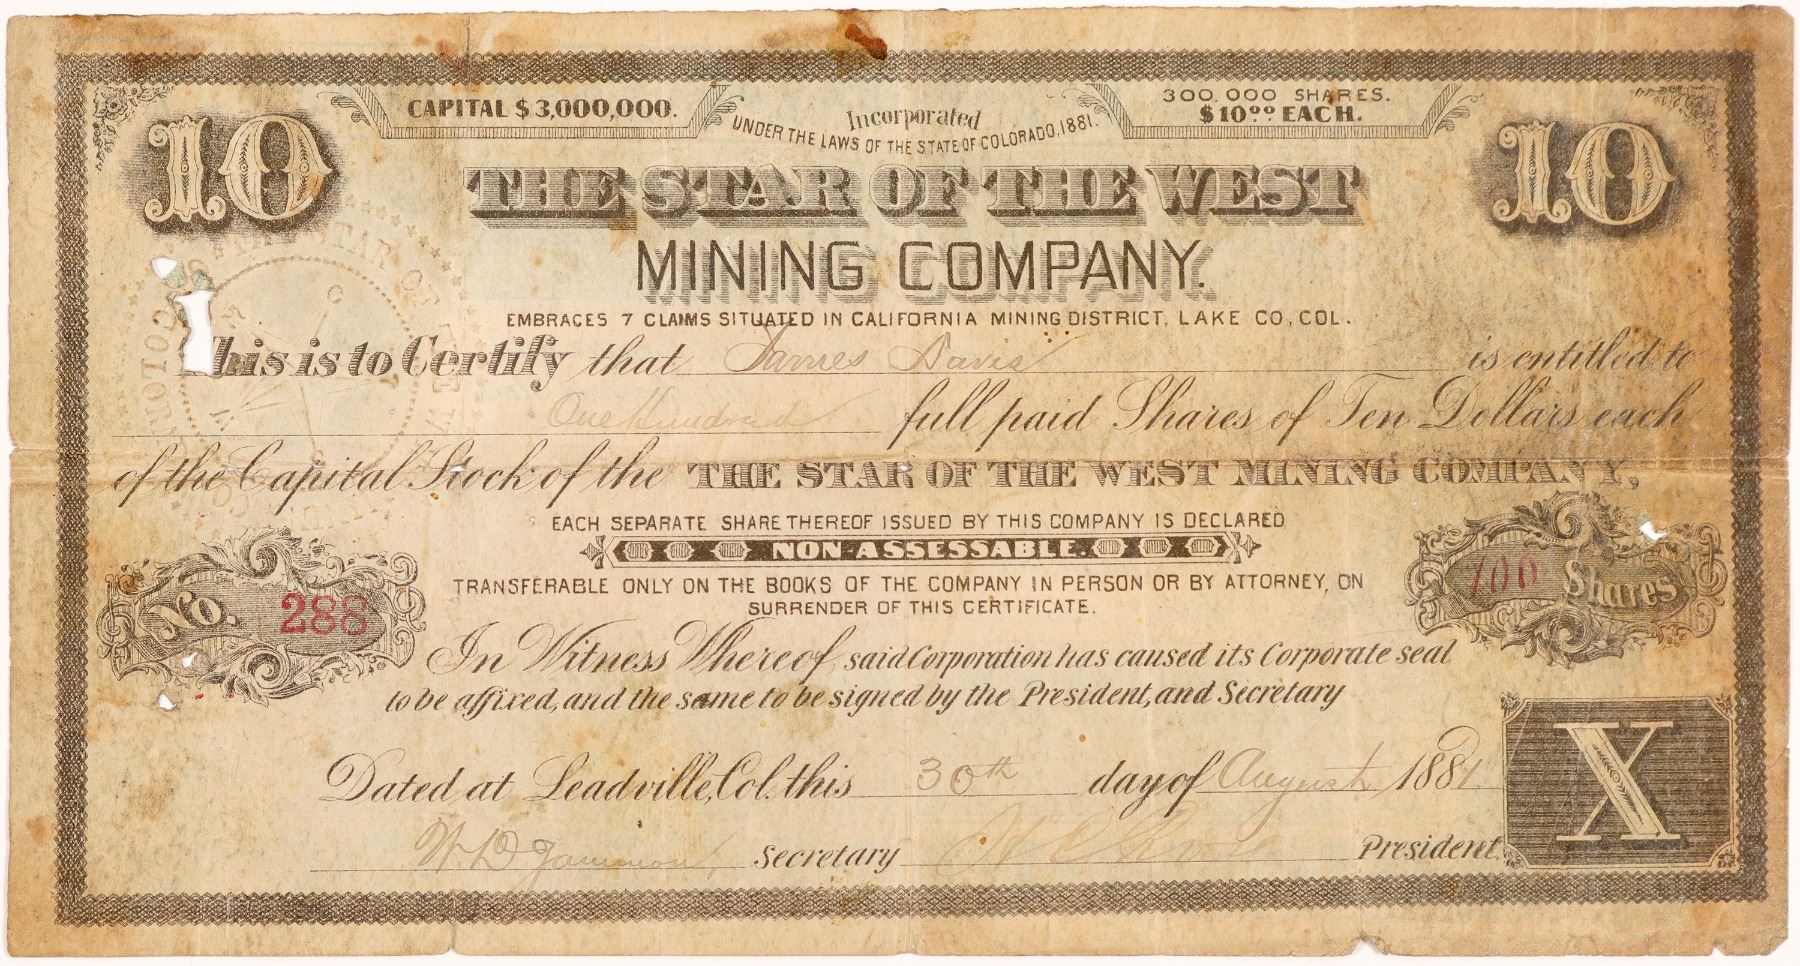 10
CAPITAL $3,000,000.
Incorporated
UNDER THE LAWS OF THE STATE OF COLORADO, 1881.
300,000 SHARES.
$10⁰⁰ EACH.
10
THE STAR OF THE WEST
MINING COMPANY.
EMBRACES 7 CLAIMS SITUATED IN CALIFORNIA MINING DISTRICT, LAKE CO, COL.
This is to Certify that James Davis is entitled to
One Hundred full paid Shares of Ten Dollars each
of the Capital Stock of the THE STAR OF THE WEST MINING COMPANY,
EACH SEPARATE SHARE THEREOF ISSUED BY THIS COMPANY IS DECLARED
NON-ASSESSABLE.
TRANSFERABLE ONLY ON THE BOOKS OF THE COMPANY IN PERSON OR BY ATTORNEY, ON
SURRENDER OF THIS CERTIFICATE.
No. 288
100 Shares
In Witness Whereof, said Corporation has caused its Corporate seal
to be affixed, and the same to be signed by the President, and Secretary
Dated at Leadville, Col. this 30th day of August 1881.
X
W. D. Secretary President.